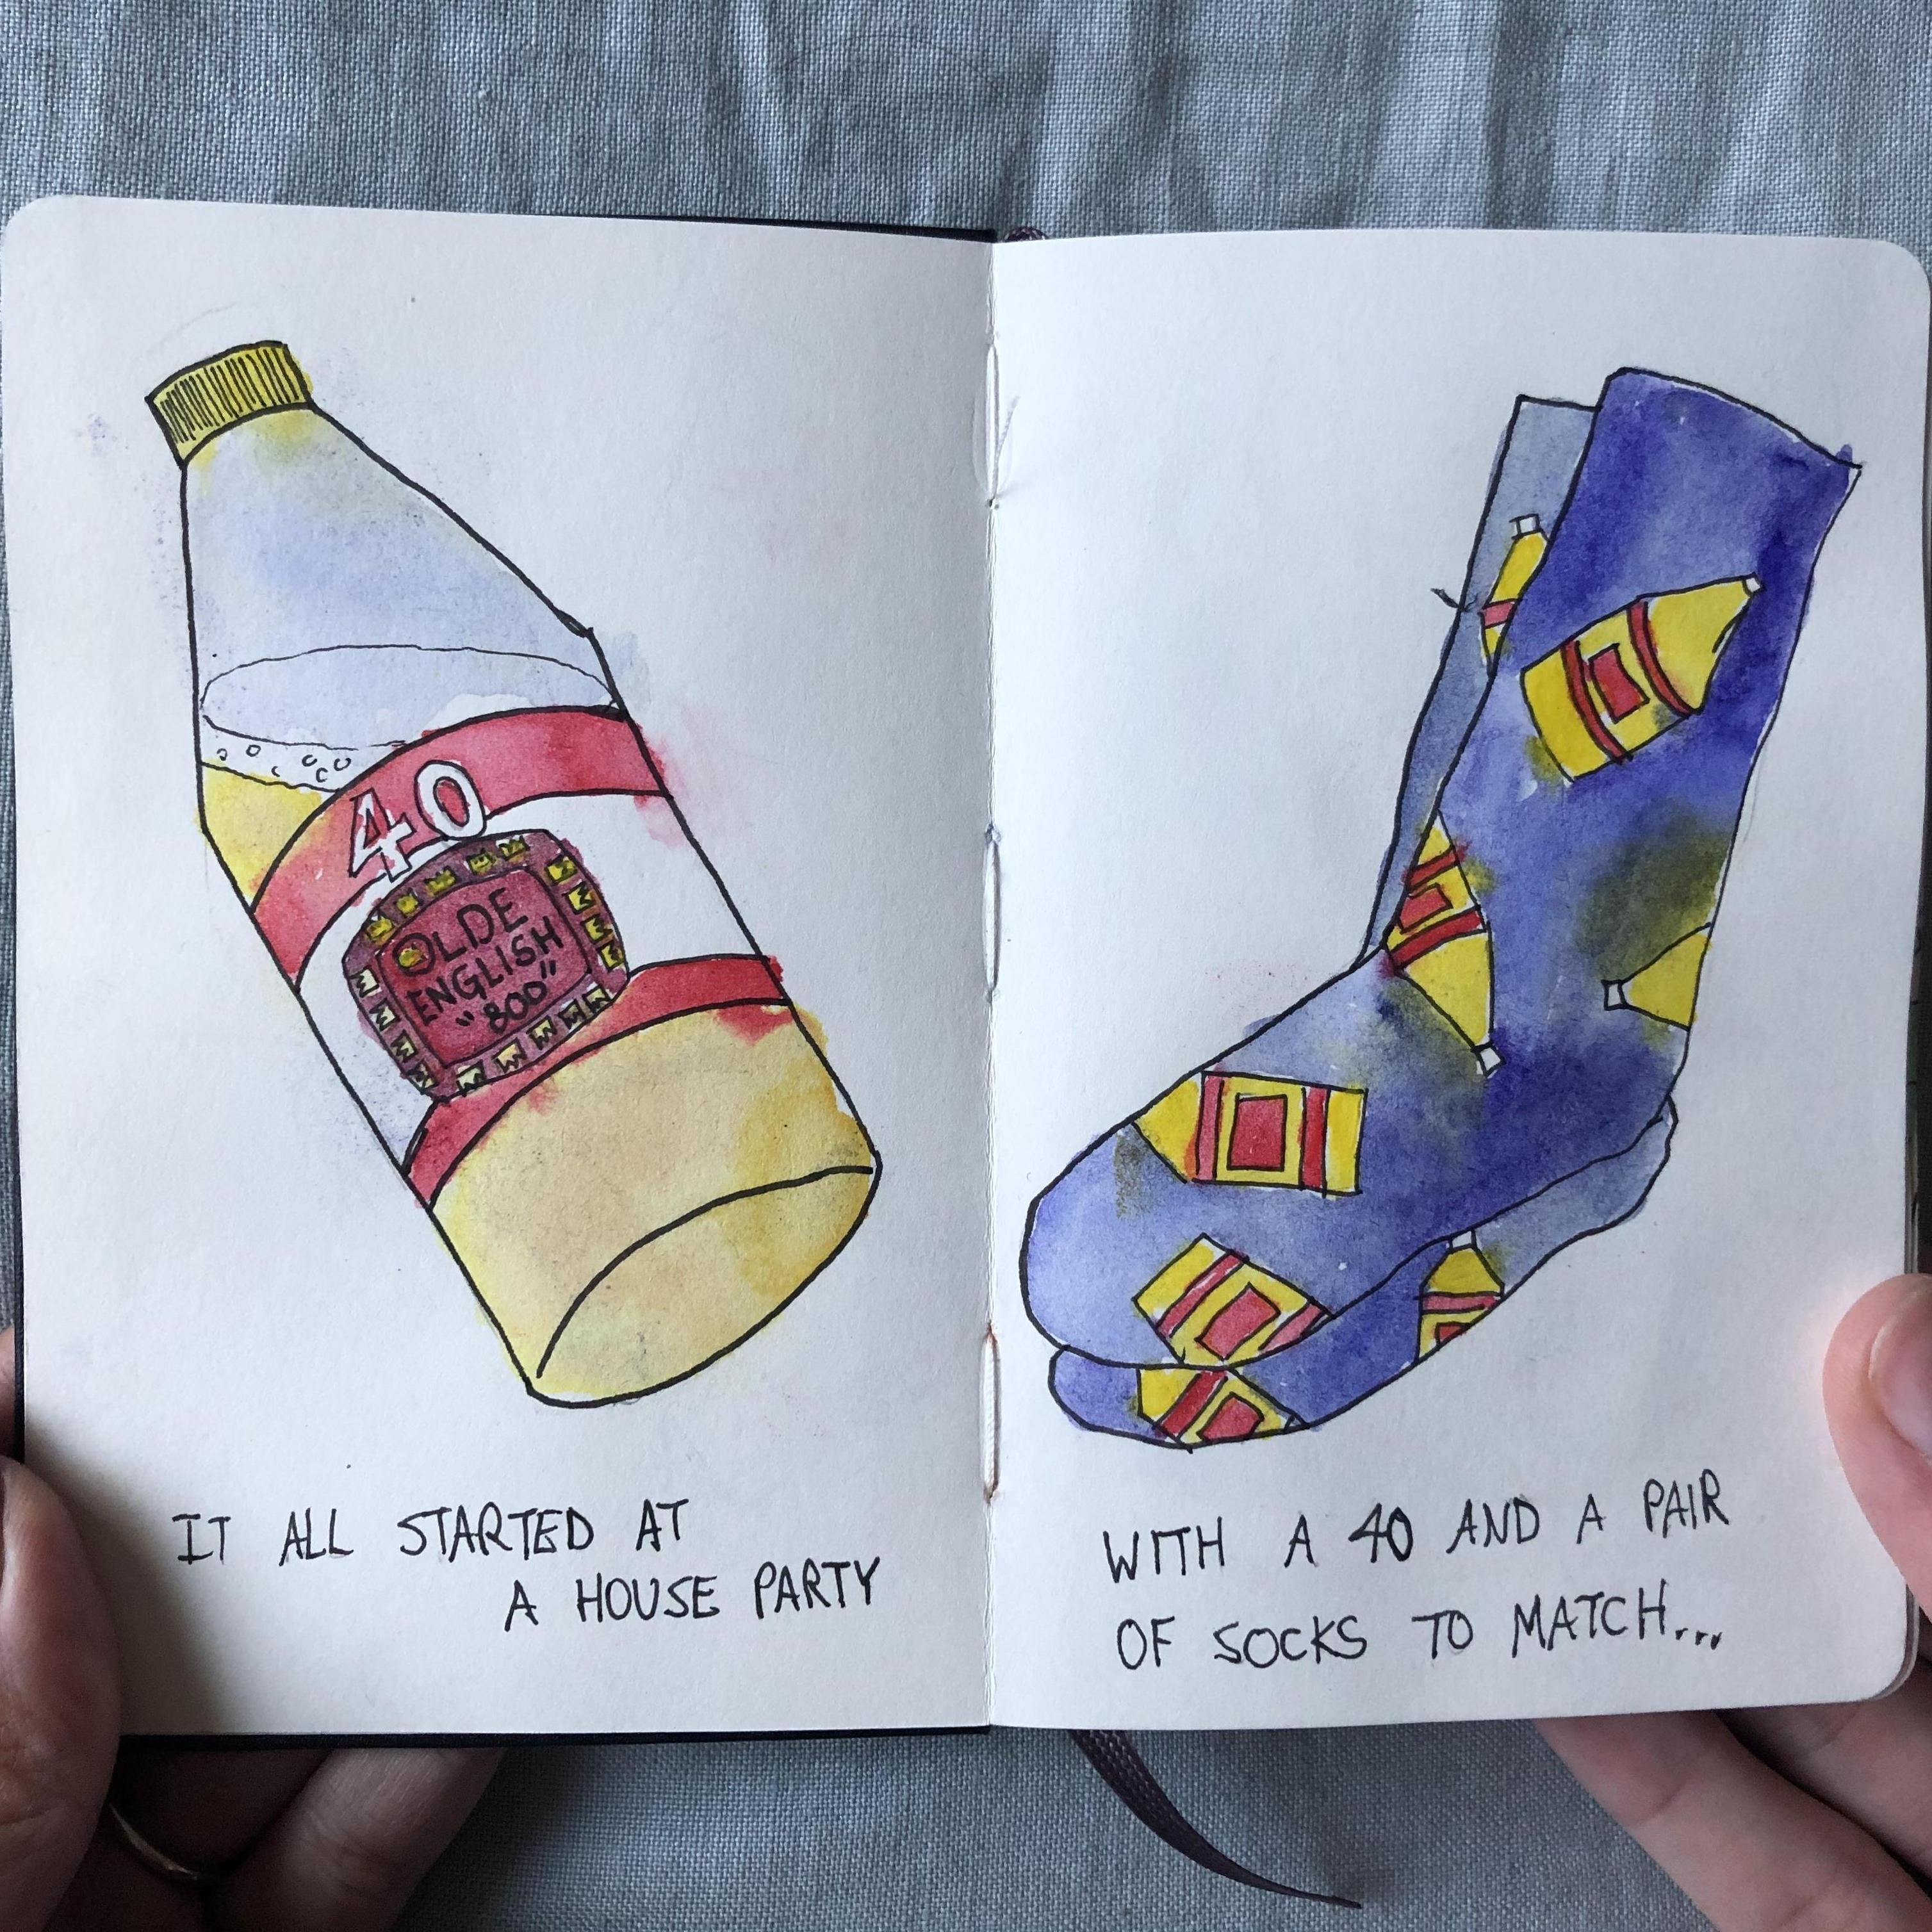 40
OLDE
ENGLISH
"800"
IT ALL STARTED AT
A HOUSE PARTY
WITH A 40 AND A PAIR
OF SOCKS TO MATCH...